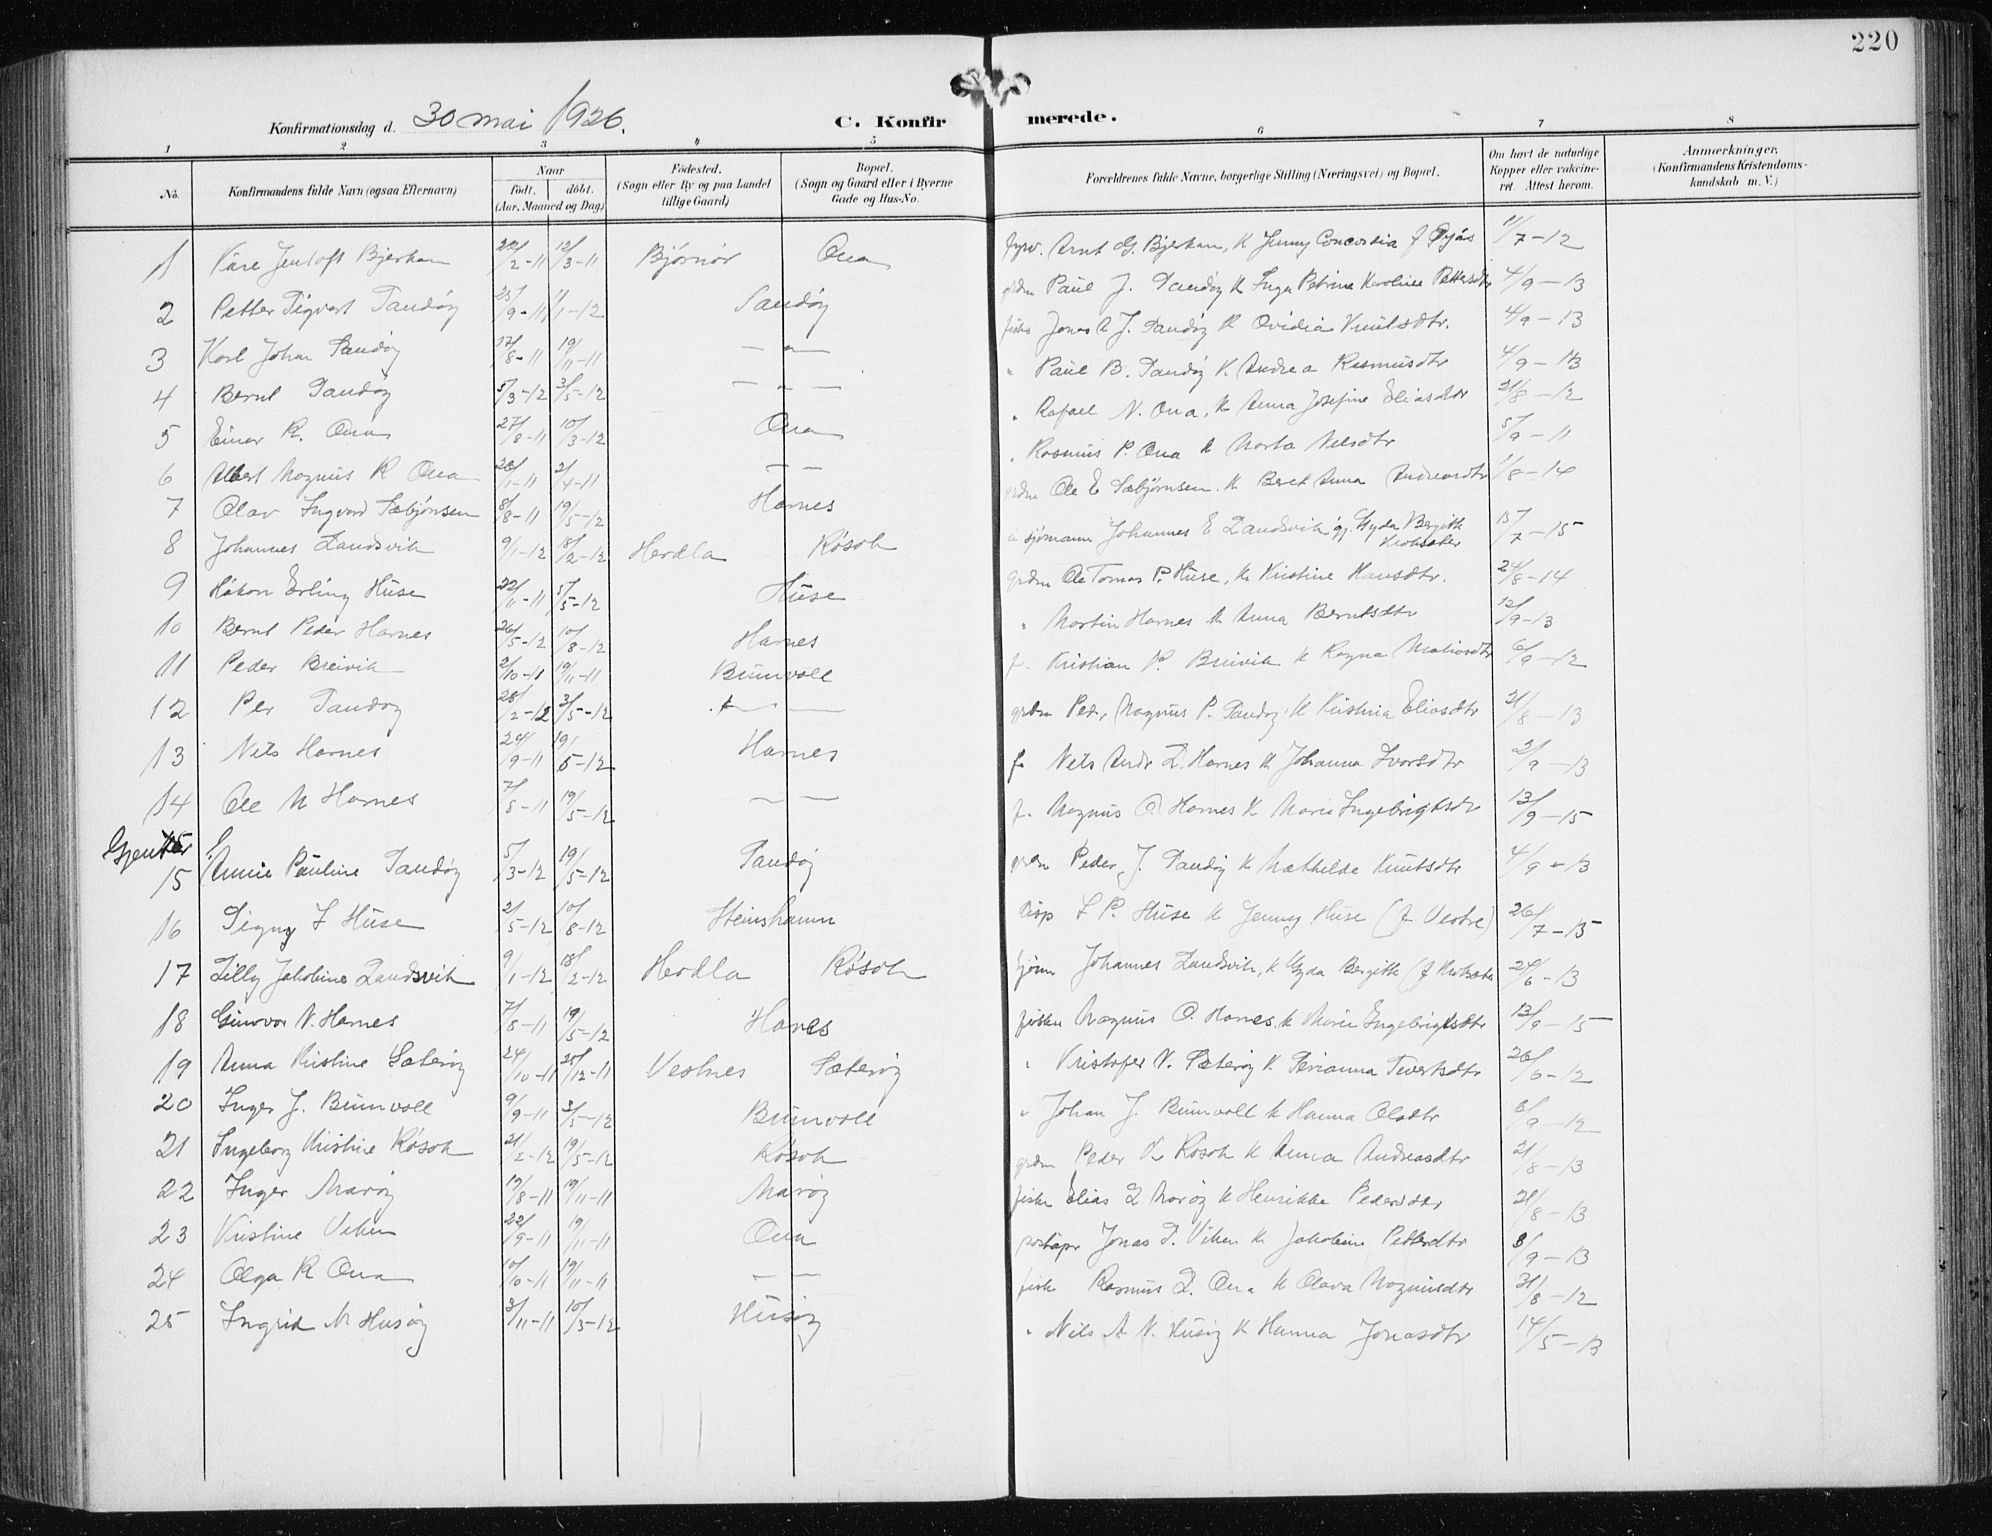 220
Konfirmationsdag d. 30 mai 1926.
C. Konfirmerede.
1 2 3 4 5 6 7 8
No. Konfirmandens fulde Navn (ogsaa Efternavn) Naar født. døbt. (Aar, Maaned og Dag) Fødested. (Sogn eller By og paa Landet tillige Gaard) Bopæl. (Sogn og Gaard eller i Byerne Gade og Hus-No. Forældrenes fulde Navne, borgerlige Stilling (Næringsvei) og Bopæl. Om havt de naturlige Kopper eller vakcineret. Attest herom. Anmærkninger. (Konfirmandens Kristendomskundskab m. V.)
1 Kåre Jentoft Bjerkan 22/2-11 12/3-11 Bjørnør Ona fyrv. Arnt G. Bjerkan, K Jenny Concordia f 7-12
2 Petter Sigvart Sandøy 25/9-11 1/1-12 Sandøy grdm Paul J. Sandøy K Inga Petrine Karoline Pettersdtr 4/9-13
3 Karl Johan Sandøy 17/8-11 19/11-11 — " — fisker Jonas A J. Sandøy K Ovidia Knutsdtr. 4/9-13
4 Bernt Sandøy 5/3-12 3/5-12 — " — " Paul B. Sandøy K Andrea Rasmusdtr 4/9-13
5 Einar R. Ona 27/8-11 10/3-12 Ona " Rafael N. Ona, K Anna Josefine Eliasdtr 21/8-12
6 Albert Magnus R Ona 28/1-11 2/4-11 — — " Rasmus P. Ona K Marta Nelsdtr 5/9-11
7 Olav Ingvard Sæbjønsen 8/8-11 19/5-12 Harnes grdm Ole E Sæbjørnsen. K Beret Anna Andreasdtr 1/8-14
8 Johannes Landsvik 9/1-12 18/2-12 Herdla Røsok sjømann Johannes E Landsvik g. Gyda Bergitte Kroksæter 15/7-15
9 Håkon Erling Huse 22/11-11 5/5-12 Huse grdm Ole Tomas P. Huse, K Kristine Hansdtr. 24/8-14
10 Bernt Peder Harnes 26/5-12 10/8-12 Harnes " Martin Harnes K Anna Berntsdtr 12/9-13
11 Peder Breivik 2/10-11 19/11-11 Buinvoll f. Kristian P. Breivik K Ragna 6/9-12
12 Per Sandøy 28/2-12 3/5-12 — " — grdm Peder Magnus P. Sandøy K Kristina Eliasdtr 21/8-13
13 Nils Harnes 24/9-11 19/5-12 Harnes f. Nels Andr L. Harnes K Johanna Ivarsdtr 2/9-13
14 Ole M Harnes 7/8-11 19/5-12 — — f. Magnus O Harnes K Marie Ingebrigtsdtr 13/9-15
Gjenter
15 Annie Pauline Sandøy 5/3-12 19/5-12 Sandøy grdm Peder J. Sandøy K Mathilde Knutsdtr 4/9-13
16 Signy L Huse 2/5-12 10/8-12 Steinshamn disp L P. Huse K Jenny Huse (f. Vestre) 26/7-15
17 Lilly Jakobine Landsvik 9/1-12 18/2-12 Herdla Røsok sjøm Johannes Landsvik, K Gyda Bergitte (f Kroksæter 24/6-13
18 Gunvor M. Harnes 7/8-11 19/5-12 Harnes fisker Magnus O. Harnes. K Marie Ingebrigtsdtr 13/9-15
19 Anna Kristine Sæterøy 24/10-11 25/12-11 Vestnes Sæterøy " Kristofer N. Sæterøy K Sivertsdtr 26/6-12
20 Inger J. Buinvoll 9/9-11 3/5-12 Buinvoll " Johan J. Buinvoll K Hanna Olsdtr 6/9-12
21 Ingeborg Kristine Røsok 21/2-12 19/5-12 Røsok grdm Peder K Røsok K Anna Andreasdtr 21/8-13
22 Inger Marøy 19/8-11 19/11-11 Marøy fisker Elias L Marøy K Henrikke Pedersdtr 21/8-13
23 Kristine Viken 22/9-11 19/11-11 Ona poståpn Jonas P. Viken K Jakobine Pettersdtr 8/9-13
24 Olga R Ona 10/10-11 19/11-11 — — fisker Rasmus L. Ona K Olava Magnusdtr 31/8-12
25 Ingrid N Husøy 3/11-11 10/3-12 Husøy " Nils A N. Husøy K Hanna Jonasdtr 14/5-13